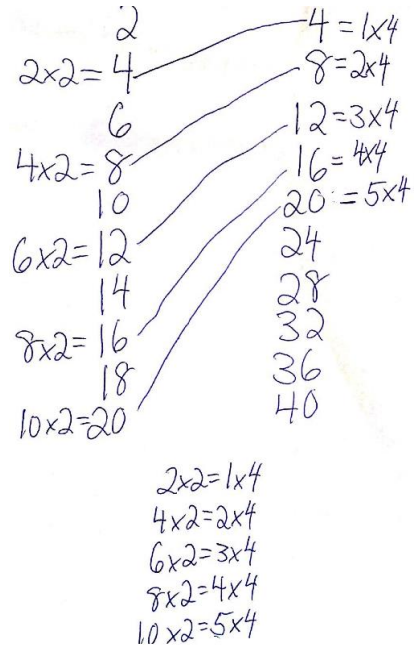 2
2x2=4
6
4x2=8
10
6x2=12
14
8x2=16
18
10x2=20
4=1x4
8=2x4
12=3x4
16=4x4
20=5x4
24
28
32
36
40
2x2=1x4
4x2=2x4
6x2=3x4
8x2=4x4
10x2=5x4